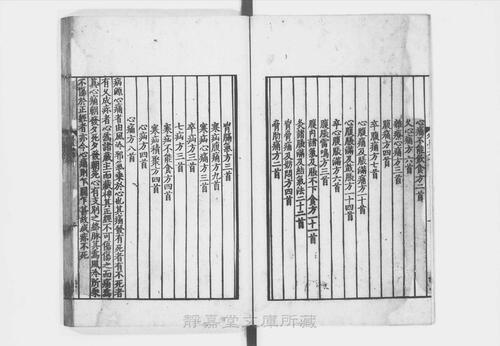 心痛不能飲食方二首
久心痛方六首
雜療心痛方三首
腹痛方四首
卒腹痛方七首
心腹痛及脹滿痛方十首
心腹脹滿及鼓脹方一十四首
卒心腹脹滿方六首
腹脹雷鳴方三首
腹內諸氣及脹不下食方一十一首
灸諸脹滿及結氣法二十二首
胷脅痛及妨悶方四首
脅肋痛方二首
胷膈氣方三首
寒疝腹痛方九首
寒疝心痛方三首
卒疝方三首
七疝方三首
寒疝不能食方四首
寒疝積聚方四首
心疝方四首
心痛方八首
病源心痛者由風冷邪氣乘於心也其痛發有死者有不死者
有久成疹者心為諸藏主而藏神其正經不可傷傷之而痛為
真心痛朝發夕死夕發朝死心有支別之絡脉其為風冷所乘
不傷於正經者亦令心痛則乍間乍甚故成疹不死
靜嘉堂文庫所藏